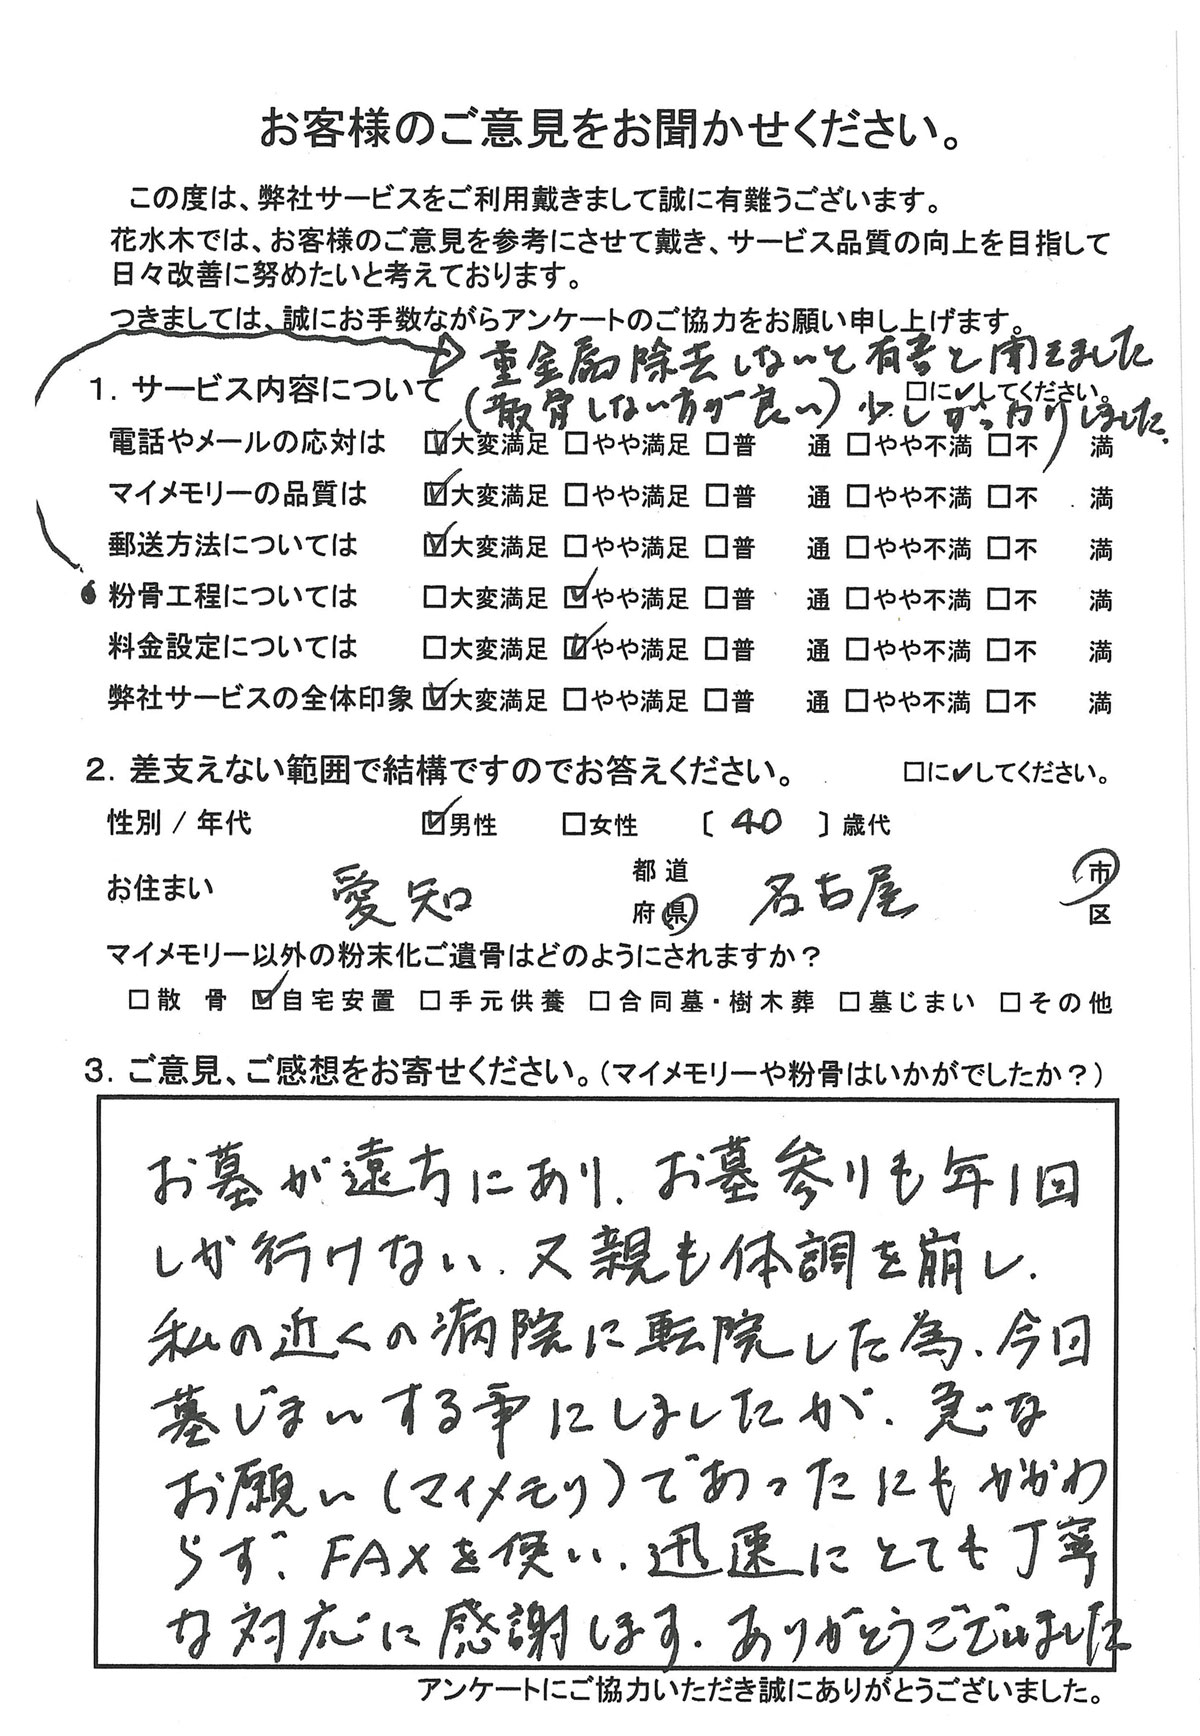 お客様のご意見をお聞かせください。
この度は、弊社サービスをご利用戴きまして誠に有難うございます。
花水木では、お客様のご意見を参考にさせて戴き、サービス品質の向上を目指して
日々改善に努めたいと考えております。
つきましては、誠にお手数ながらアンケートのご協力をお願い申し上げます。
重金属除去しないと有害と聞きました
1. サービス内容について □に✔してください。
(散骨しない方が良い) 少しがっかりしました。
電話やメールの応対は ☑大変満足 □やや満足 □普 通 □やや不満 □不 満
マイメモリーの品質は ☑大変満足 □やや満足 □普 通 □やや不満 □不 満
郵送方法については ☑大変満足 □やや満足 □普 通 □やや不満 □不 満
粉骨工程については □大変満足 ☑やや満足 □普 通 □やや不満 □不 満
料金設定については □大変満足 ☑やや満足 □普 通 □やや不満 □不 満
弊社サービスの全体印象 ☑大変満足 □やや満足 □普 通 □やや不満 □不 満
2. 差支えない範囲で結構ですのでお答えください。 □に✔してください。
性別 / 年代 ☑男性 □女性 〔 40 〕歳代
お住まい 愛知 都道府県 名古屋 市区
マイメモリー以外の粉末化ご遺骨はどのようにされますか?
□散 骨 ☑自宅安置 □手元供養 □合同墓・樹木葬 □墓じまい □その他
3. ご意見、ご感想をお寄せください。(マイメモリーや粉骨はいかがでしたか?)
お墓が遠方にあり、お墓参りも年1回
しか行けない、又親も体調を崩し、
私の近くの病院に転院した為、今回
墓じまいする事にしましたが、急な
お願い(マイメモリ)であったにもかかわ
らず、FAXを使い、迅速にとても丁寧
な対応に感謝します。ありがとうございました
アンケートにご協力いただき誠にありがとうございました。